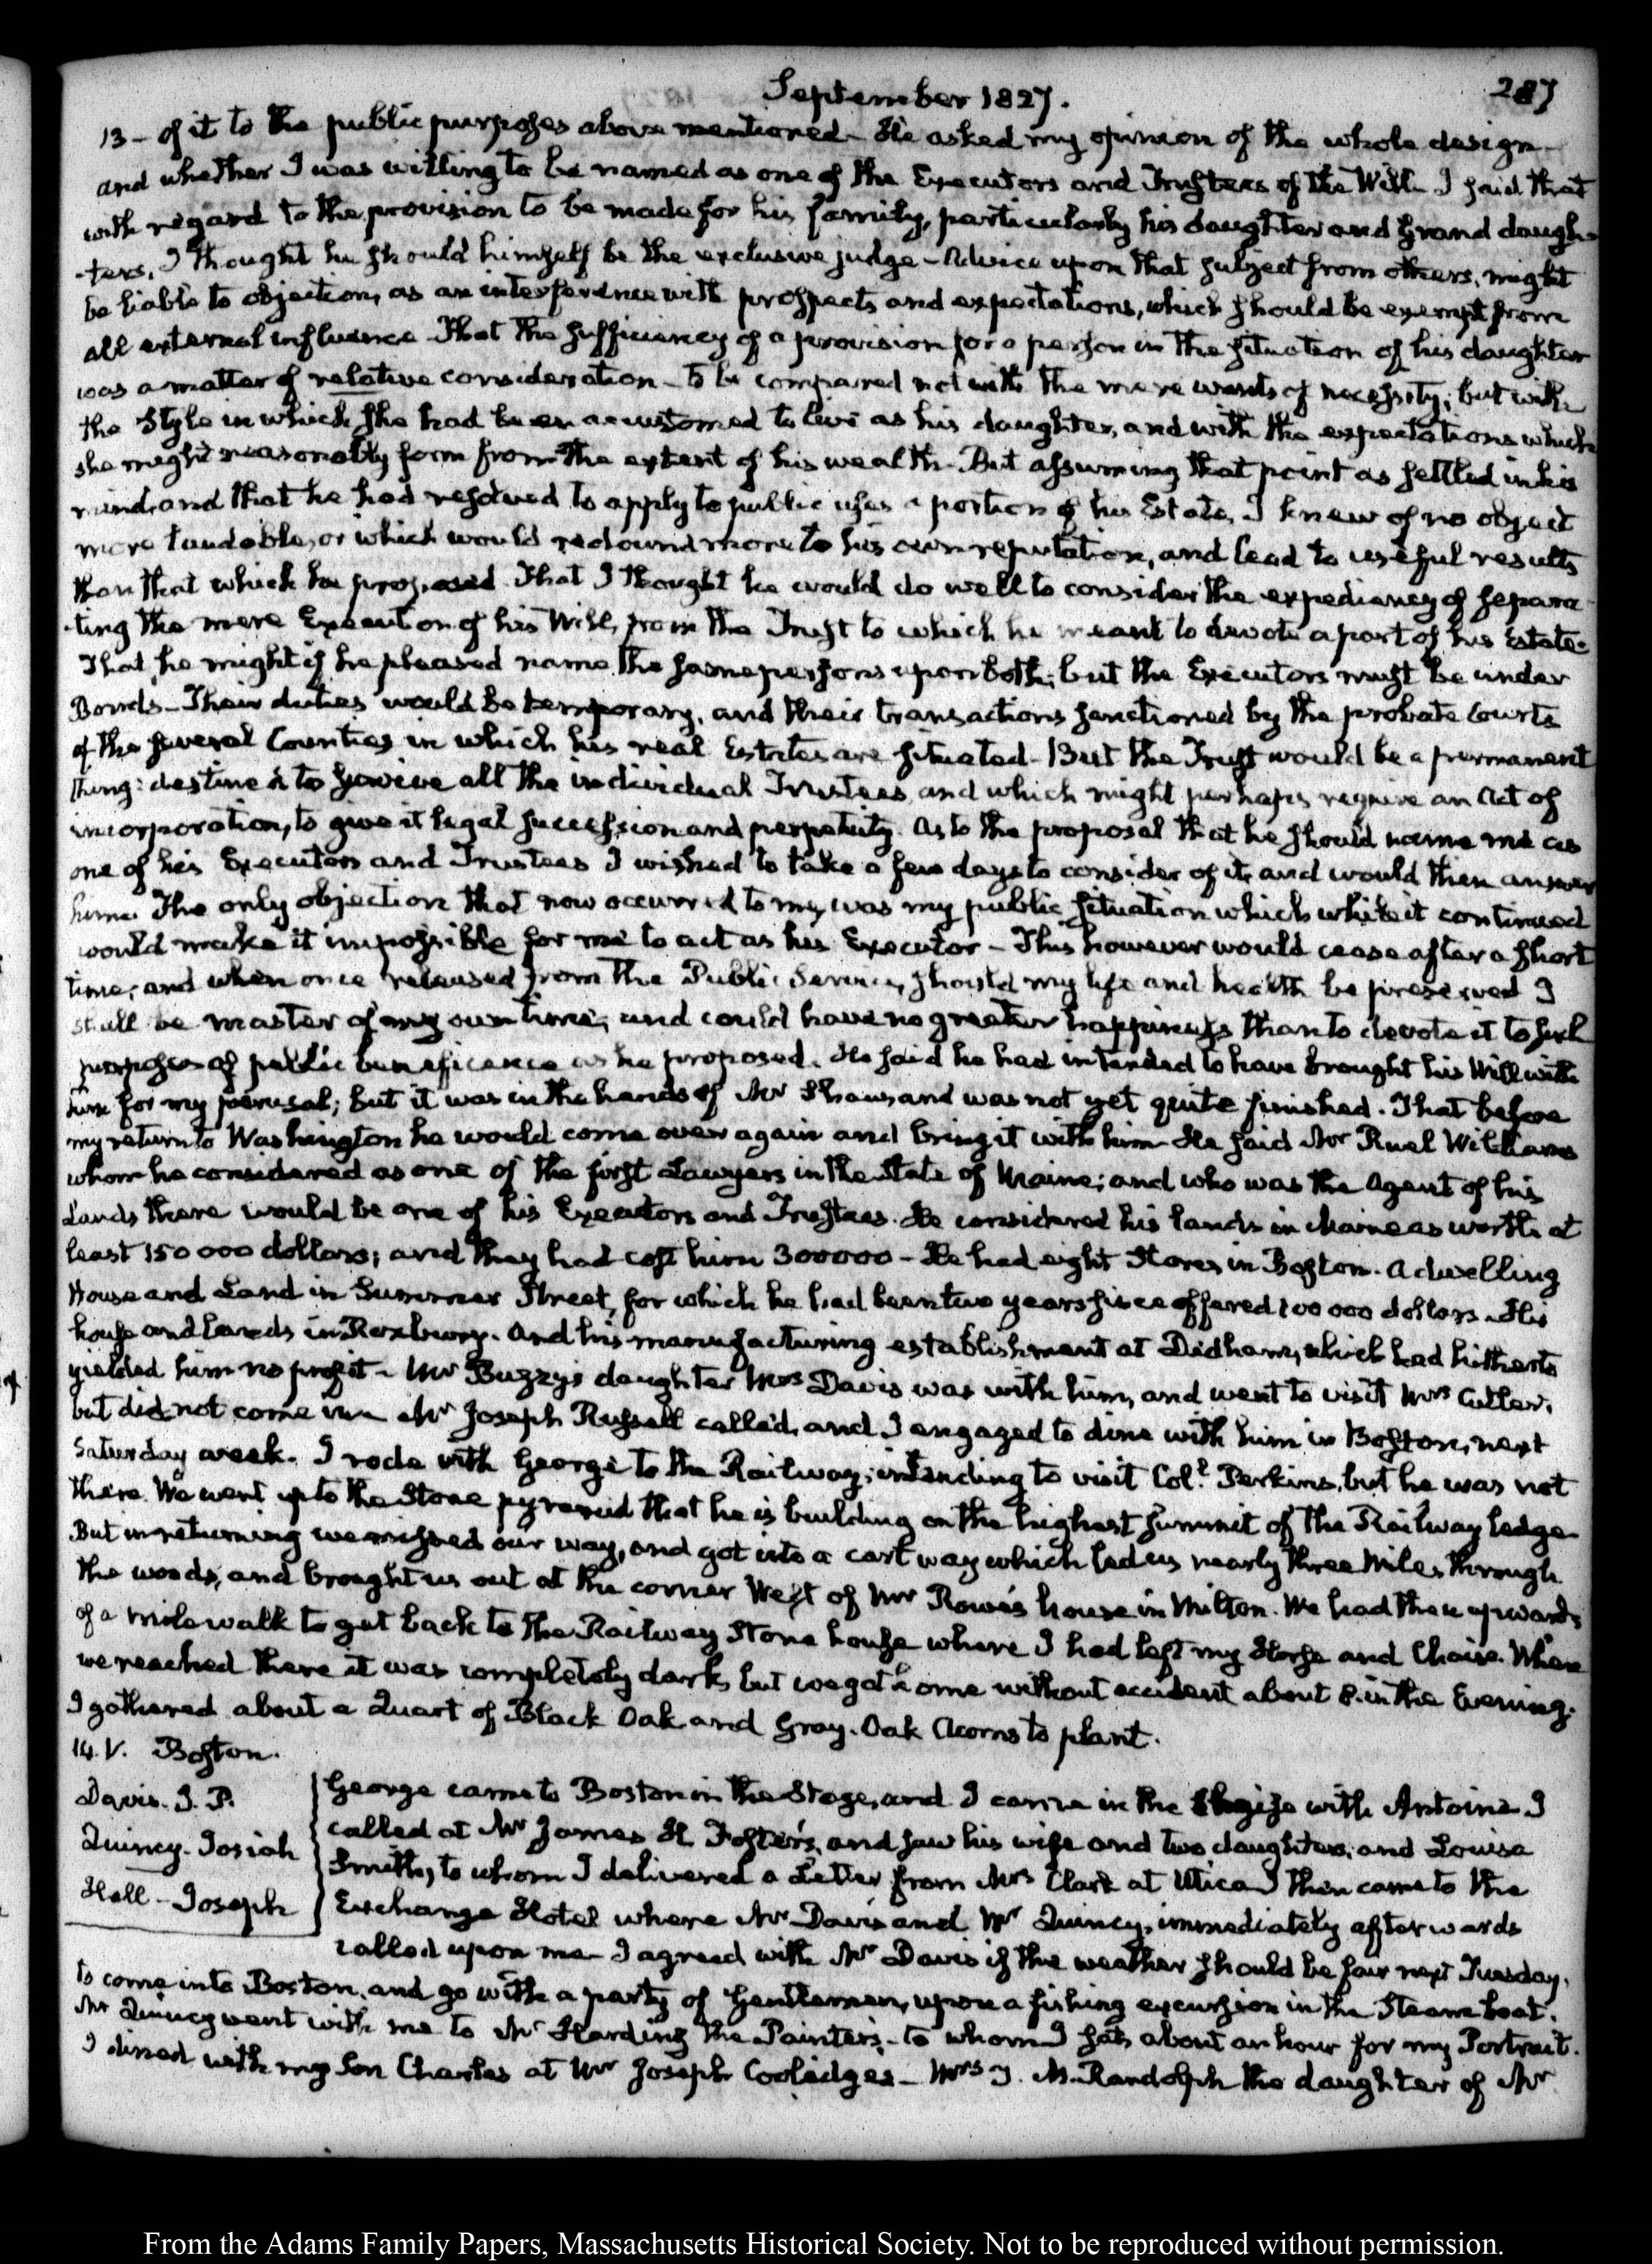 September 1827.
287
13 - of it to the public purposes above mentioned - He asked my opinion of the whole design -
and whether I was willing to be named as one of the Executors and Trustees of the Will. I said that
with regard to the provision to be made for his family, particularly his daughter and Grand daugh-
-ters, I thought he should himself be the exclusive judge - Advice upon that subject from others, might
be liable to objection, as an interference with prospects and expectations, which should be exempt from
all external influence. That the sufficiency of a provision for a person in the situation of his daughter
was a matter of relative consideration - to be compared not with the mere wants of necessity; but with
the Style in which she had been accustomed to live as his daughter, and with the expectations which
she might reasonably form from the extent of his wealth. But assuming that point as settled in his
mind, and that he had resolved to apply to public uses a portion of his Estate, I knew of no object
more laudable, or which would redound more to his own reputation, and lead to useful results
than that which he proposed. That I thought he would do well to consider the expediency of separa
-ting the mere Execution of his Will, from the Trust to which he meant to devote a part of his Estate.
That he might if he pleased name the same persons upon both; but the Executors must be under
Bonds - Their duties would be temporary, and their transactions sanctioned by the probate Courts
of the several Counties in which his real Estates are situated - But the Trust would be a permanent
thing: destined to survive all the individual Trustees, and which might perhaps require an Act of
incorporation, to give it legal succession and perpetuity. As to the proposal that he should name me as
one of his Executors and Trustees I wished to take a few days to consider of it, and would then answer
him. The only objection that now occurred to me, was my public situation which while it continued
would make it impossible for me to act as his Executor - This however would cease after a short
time; and when once released from the Public Service, should my life and health be preserved I
shall be master of my own time, and could have no greater happiness than to devote it to such
purposes of public beneficence as he proposed. He said he had intended to have brought his Will with
him for my perusal; but it was in the hands of Mr Shaw, and was not yet quite finished. That before
my return to Washington he would come over again and bring it with him - He said Mr Ruel Williams
whom he considered as one of the first Lawyers in the State of Maine; and who was the Agent of his
Lands there would be one of his Executors and Trustees. He considered his lands in Maine as worth at
least 150 000 dollars; and they had cost him 300000 - He had eight Stores in Boston. A dwelling
House and Land in Summer Street, for which he had been two years since offered 100 000 dollars. His
house and lands in Roxbury. And his manufacturing establishment at Didham, which had hitherto
yielded him no profit - Mr Bussy's daughter Mrs Davis was with him, and went to visit Mrs Cutler,
but did not come in. Mr Joseph Russell called, and I engaged to dine with him in Boston, next
Saturday week. I rode with George to the Railway; intending to visit Coll. Perkins, but he was not
there. We went up to the Stone pyramid that he is building on the highest summit of the Railway ledge
But in returning we missed our way, and got into a cart way which led us nearly three Miles through
the woods, and brought us out at the corner West of Mr Rowe's house in Milton. We had then upwards
of a mile walk to get back to the Railway Stone house where I had left my Horse and Chaise. When
we reached there it was completely dark, but we got home without accident about 8. in the Evening.
I gathered about a Quart of Black Oak and Gray-Oak Acorns to plant.
14. V. Boston.
Davis. I. P.
Quincy. Josiah
Hall - Joseph
George came to Boston in the Stage, and I came in the Chaise with Antoine. I
called at Mr James H Foster's, and saw his wife and two daughters, and Louisa
Smith, to whom I delivered a Letter from Mrs Clark at Utica. I then came to the
Exchange Hotel where Mr Davis and Mr Quincy, immediately afterwards
called upon me - I agreed with Mr Davis if the weather should be fair next Tuesday,
to come into Boston, and go with a party of Gentlemen, upon a fishing excursion in the Steam boat.
Mr Quincy went with me to Mr Harding the Painter's - to whom I sat about an hour for my Portrait.
I dined with my Son Charles at Mr Joseph Coolidge's - Mrs T. M. Randolph the daughter of Mr
From the Adams Family Papers, Massachusetts Historical Society. Not to be reproduced without permission.